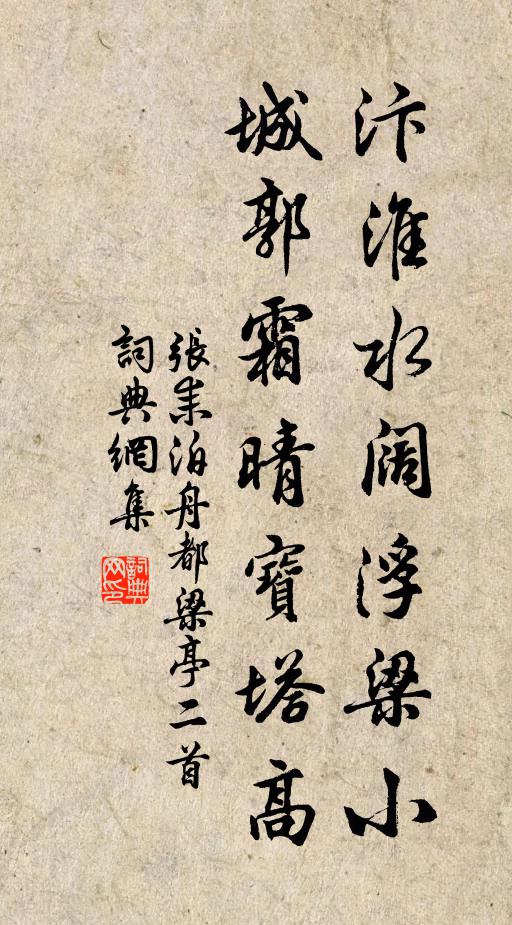 汴淮水阔浮梁小
城郭霜晴寶塔高
張耒泊舟都梁亭二首
詞典網集
詞典網印